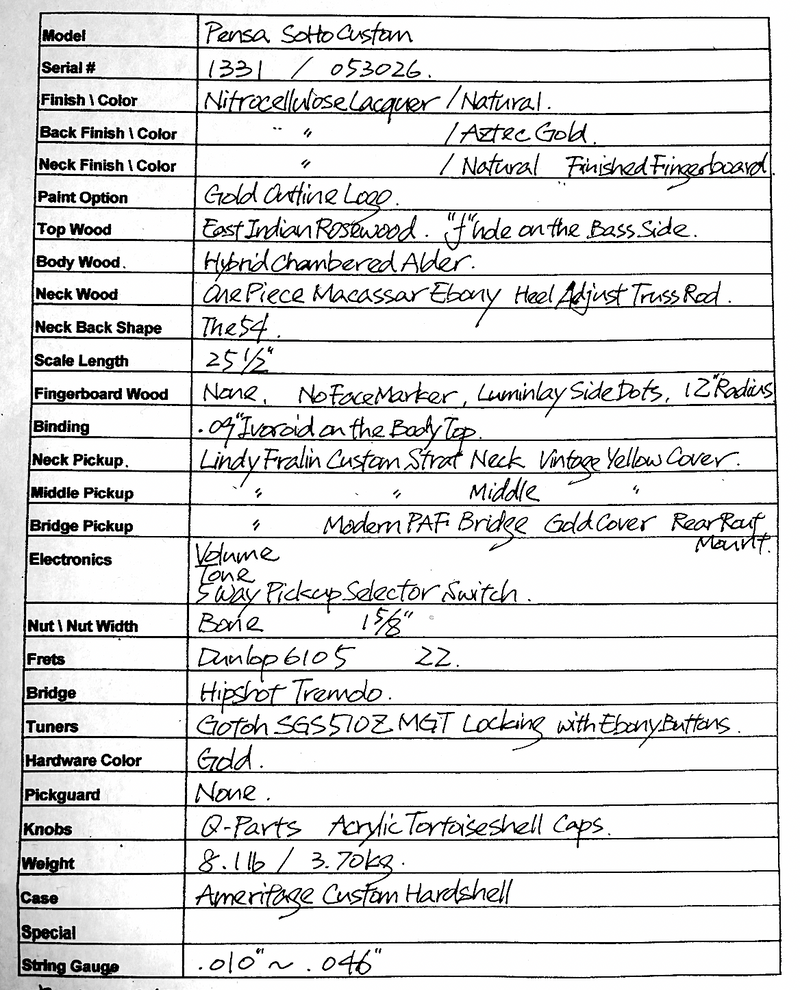 Model Pensa Sotto Custom
Serial # 1331 / 053026.
Finish \ Color Nitrocellulose Lacquer / Natural.
Back Finish \ Color " " / Aztec Gold.
Neck Finish \ Color " / Natural Finished Fingerboard.
Paint Option Gold Outline Logo.
Top Wood East Indian Rosewood. "f" hole on the Bass Side.
Body Wood. Hybrid Chambered Alder.
Neck Wood One Piece Macassar Ebony Heel Adjust Truss Rod.
Neck Back Shape The 54.
Scale Length 25 1/2"
Fingerboard Wood None, No Face Marker, Luminlay Side Dots, 12" Radius
Binding .09" Ivoroid on the Body Top.
Neck Pickup. Lindy Fralin Custom Strat Neck Vintage Yellow Cover.
Middle Pickup " " Middle "
Bridge Pickup " Modern PAF Bridge Gold Cover Rear Rout
Mount.
Electronics Volume
Tone
5 Way Pickup Selector Switch.
Nut \ Nut Width Bone 1 5/8"
Frets Dunlop 6105 22.
Bridge Hipshot Tremolo.
Tuners Gotoh SGS510Z MGT Locking with Ebony Buttons.
Hardware Color Gold.
Pickguard None.
Knobs Q-Parts Acrylic Tortoiseshell Caps.
Weight 8.1 lb / 3.70 kg.
Case Ameritage Custom Hardshell
Special
String Gauge .010" ~ .046"